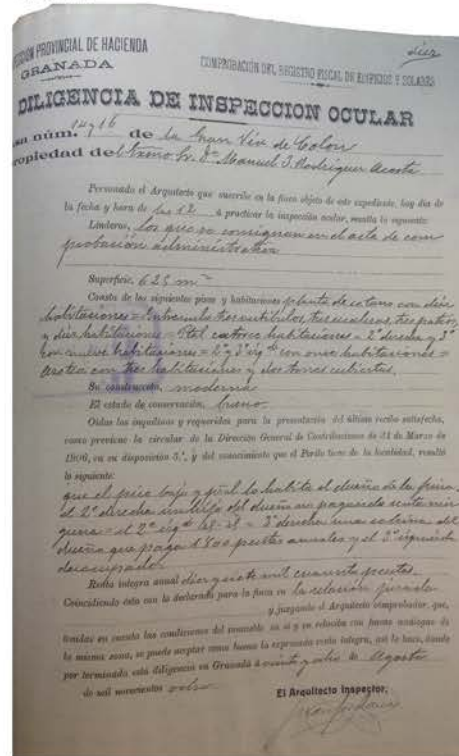 CCION PROVINCIAL DE HACIENDA
GRANADA
diez
COMPROBACIÓN DEL REGISTRO FISCAL DE EDIFICIOS Y SOLARES
DILIGENCIA DE INSPECCION OCULAR
sa núm. 14 y 16 de la Gran Via de Colon
ropiedad del Excmo Sr. Dn Manuel J. Rodriguez Acosta
Personado el Arquitecto que suscribe en la finca objeto de este expediente, hoy dia de
la fecha y hora de las 12 á practicar la inspección ocular, resulta lo siguiente:
Linderos, los que se consignan en el acta de com
probación administrativa
Superficie, 625 m²
Consta de los siguientes pisos y habitaciones planta de sotano con diez
habitaciones = Entresuelo tres vestibulos, tres escaleras, tres patios
y diez habitaciones = Pral catorce habitaciones = 2º derecha y 3º
con nueve habitaciones = 2º y 3º izqda con once habitaciones =
azotea con tres habitaciones y dos torres cubiertas.
Su construcción, moderna
El estado de conservación, bueno
Oidos los inquilinos y requeridos para la presentación del último recibo satisfecho,
como previene la circular de la Dirección General de Contribuciones de 31 de Marzo de
1906, en su disposición 5.ª, y del conocimiento que el Perito tiene de la localidad, resultó
lo siguiente:
que el piso bajo y pral lo habita el dueño de la finca,
el 2º derecha un hijo del dueño no pagando renta nin
guna = el 2º izqda = 3º derecha una sobrina del
dueño que paga 1800 pesetas anuales y el 3º izquierda
desocupado
Renta íntegra anual diez y siete mil cuarenta pesetas
Coincidiendo esta con la declarada para la finca en la relación jurada
y juzgando el Arquitecto comprobador que,
tenidas en cuenta las condiciones del inmueble en sí y en relación con fincas análogas de
la misma zona, se puede aceptar como buena la expresada renta íntegra, así lo hace, dando
por terminada esta diligencia en Granada á veinte y ocho de Agosto
de mil novecientos ocho
El Arquitecto Inspector,